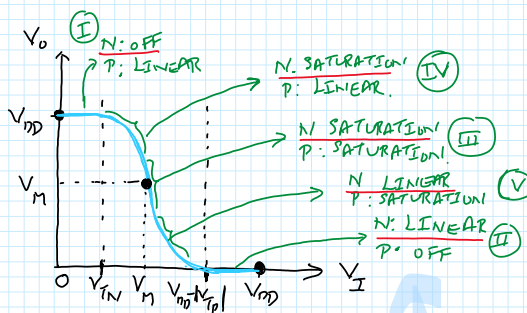 Vo
I
N: OFF
P: LINEAR
N. SATURATION
P: LINEAR.
IV
VDD
N SATURATION
P: SATURATION.
III
VM
N LINEAR
P: SATURATION
V
N: LINEAR
P: OFF
II
O VTN VM VDD-|VTP| VDD VI